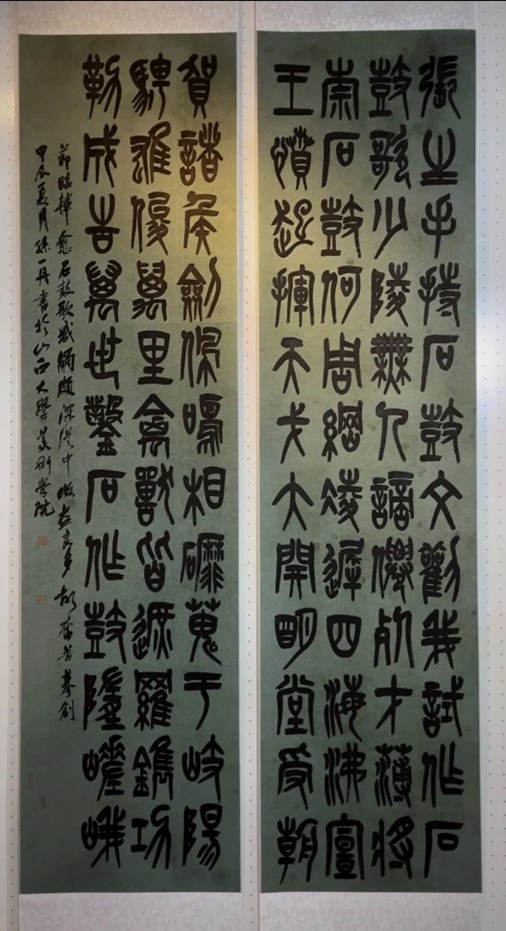 張生手持石鼓文勸我試作石
鼓歌少陵無人謫僊死才薄將
柰石鼓何周綱淩遲四海沸宣
王憤起揮天戈大開明堂受朝
賀諸侯劍佩鳴相磨蒐于岐陽
騁雄俊萬里禽獸皆遮羅鐫功
勒成告萬世鑿石作鼓隳嵯峨
節臨韓愈石鼓歌感觸頗深從中收益良多故奮筆摹創
甲辰夏月孫一丹書於山西大學美術學院